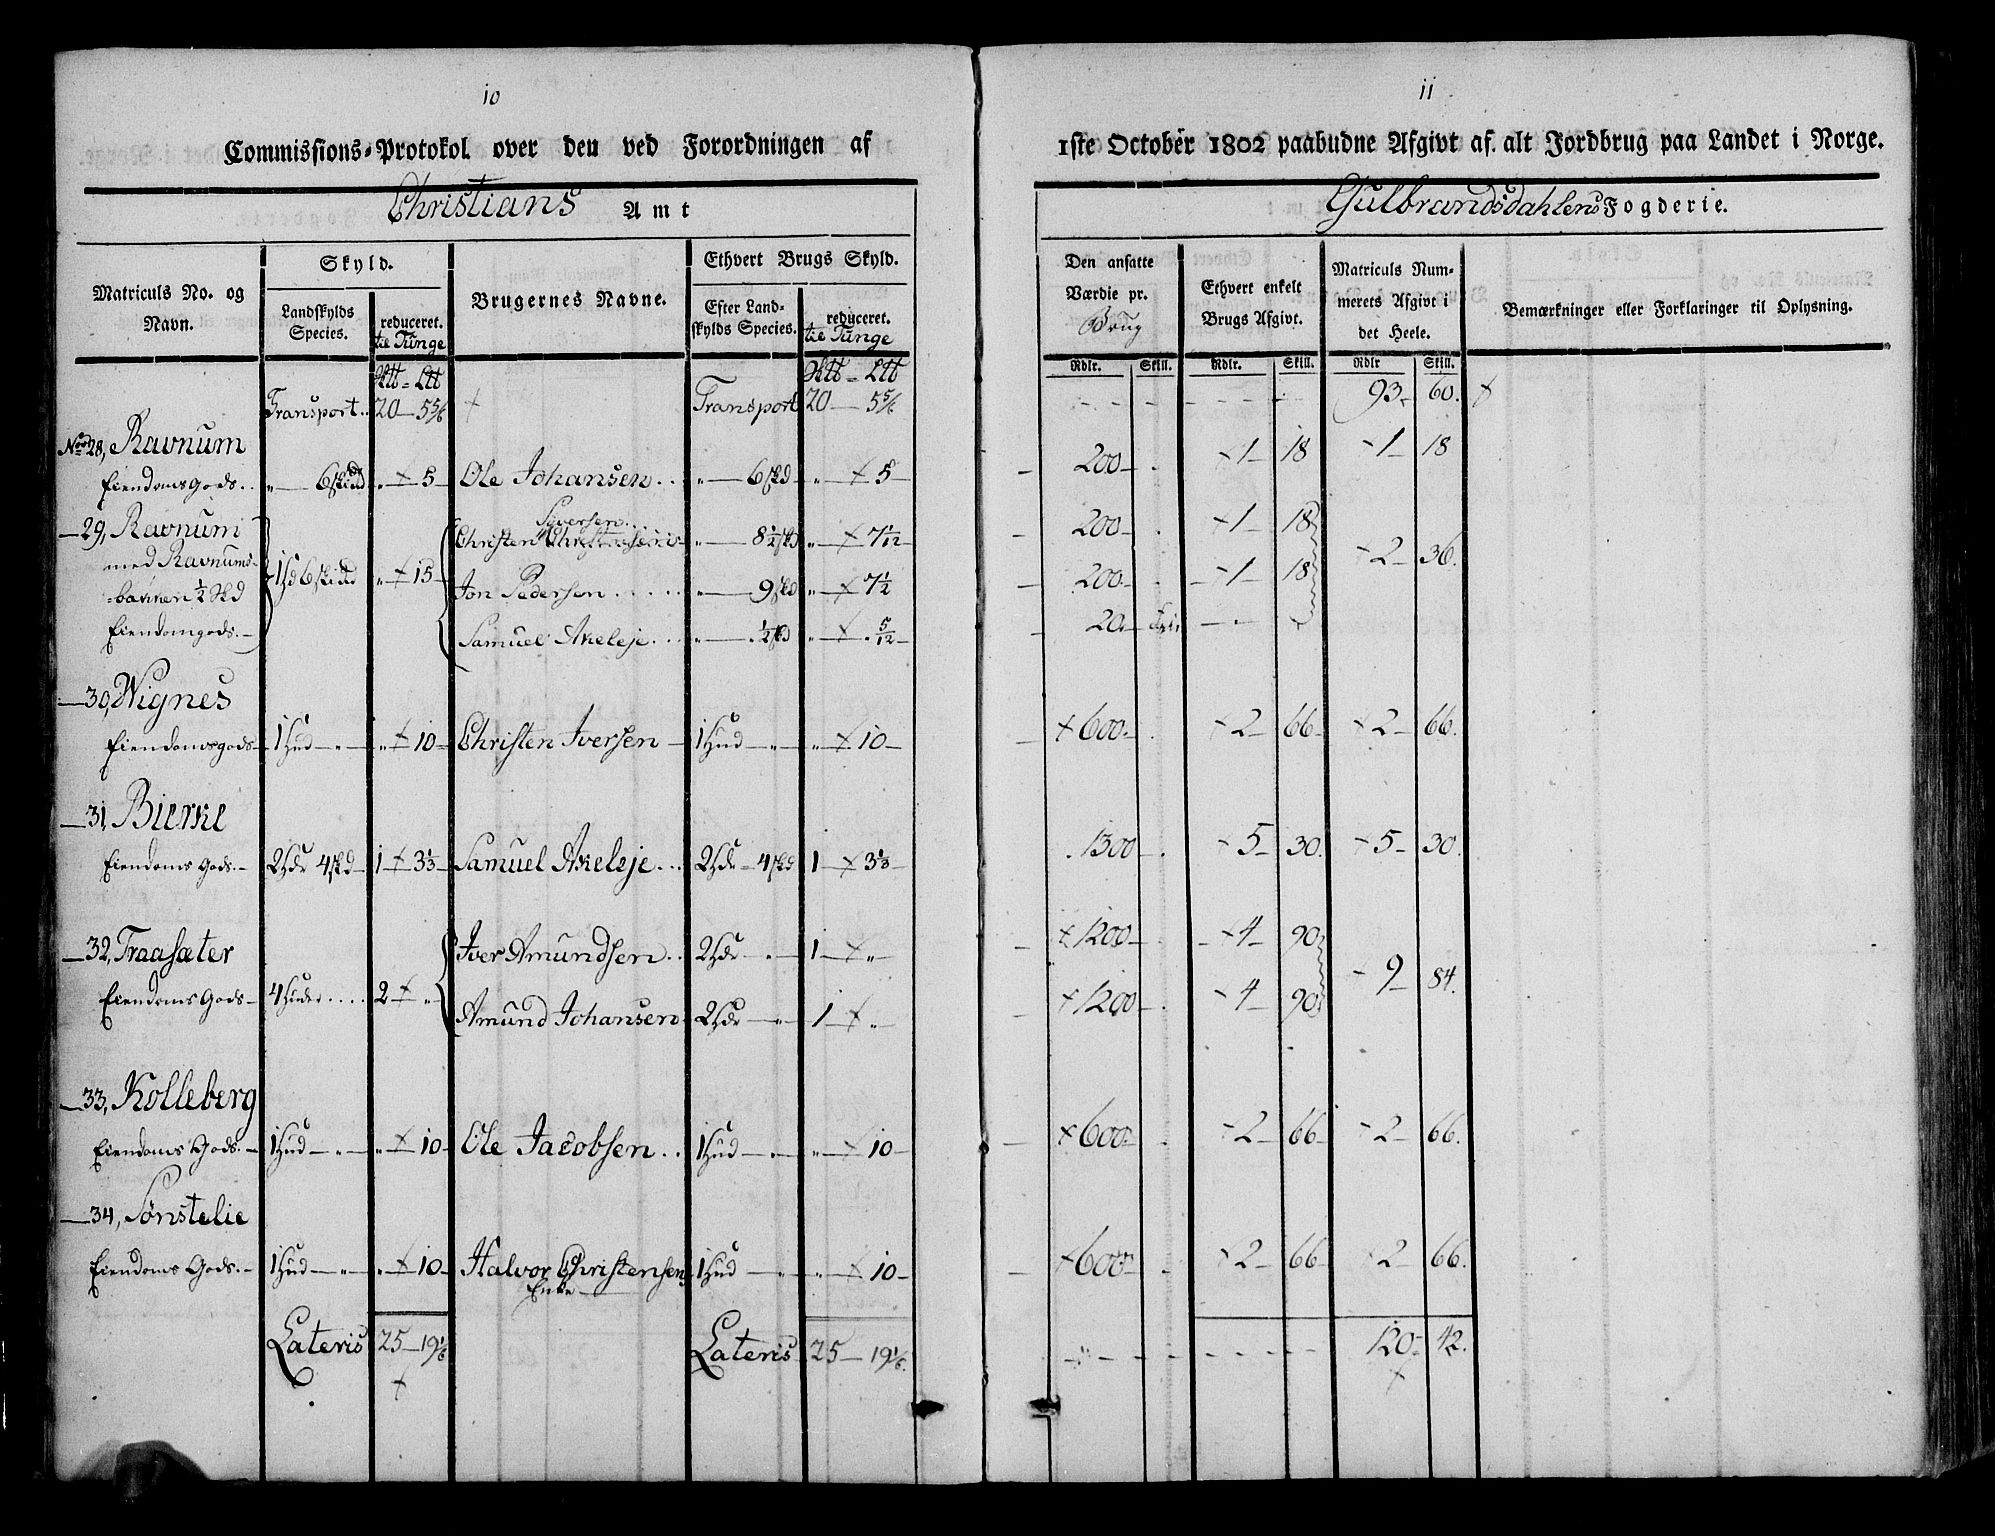 10
Commissions-Protokol over den ved Forordningen af
Christians Amt
Matriculs No. og Navn.
Skyld.
Landskylds Species.
reduceret. til Tunge
Brugernes Navne.
Ethvert Brugs Skyld.
Efter Landskylds Species.
reduceret. til Tunge
Transport.. 20 — 5 5/6 Transport 20 — 5 5/6
No 28, Ravnum
Eiendoms Gods.. " — 6 skind " — 5 Ole Johansen... " — 6 skd " — 5
29, Ravnum
med Ravnums-
bakken 1/2 Skd
Eiendomgods.
1 Hd 6 skind " — 15
Siversen...
Christen Christensen " — 8 1/2 skd " — 7 1/12
Jon Pedersen...... " — 9 skd " — 7 1/2
Samuel Akeleje... " — 1/2 skd " — 5/12
30, Wignes
Eiendomsgods 1 Hud — " " — 10 Christen Iversen 1 Hud — " " — 10
31, Bierke
Eiendoms Gods. 2 Hdr 4 skd 1 — 3 1/3 Samuel Akeleje... 2 Hdr 4 skd 1 — 3 1/3
32, Traasæter
Eiendoms Gods 4 Huder.... 2 — "
Iver Amundsen.. 2 Hdr " 1 — "
Amund Johansen 2 Hdr — " 1 — "
33, Kolleberg
Eiendoms Gods. 1 Hud — " " — 10 Ole Jacobsen.. 1 Hud — " " — 10
34, Sønstelie
Eiendoms Gods. 1 Hud — " " — 10 Halvor Christensens 1 Hud — " " — 10
Enke
Lateris 25 — 19 1/6 Lateris 25 — 19 1/6
11
1ste October 1802 paabudne Afgivt af alt Jordbrug paa Landet i Norge.
Gulbrandsdahlens Fogderie.
Den ansatte Værdie pr. Brug
Ethvert enkelt Brugs Afgivt.
Matriculs Nummerets Afgivt i det Heele.
Bemærkninger eller Forklaringer til Oplysning.
Rdlr. Skill. Rdlr. Skill. Rdlr Skill.
93 — 60.
200 — . 1 — 18 1 — 18
200 — . 1 — 18
2 — 36.
200 — . 1 — 18
20 —
600 — . 2 — 66 2 — 66.
1300 — . 5 — 30. 5 — 30.
1200 — . 4 — 90
9 — 84.
1200 — . 4 — 90
600 — . 2 — 66 2 — 66.
600 — . 2 — 66 2 — 66.
120 — 42.